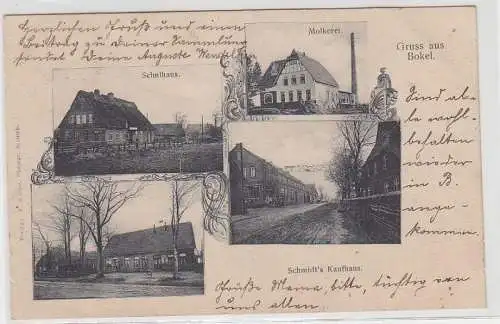 Herzlichen Gruß und einen
Beitrag zu Deiner Sammlung
sendet Deine Auguste
Molkerei.
Gruss aus
Bokel.
Schulhaus.
Sind al=
le wohl=
behalten
wieder
in B.
ange=
kommen.
Schmidt's Kaufhaus.
Grüße Mama, bitte, tüchtig von
uns allen.